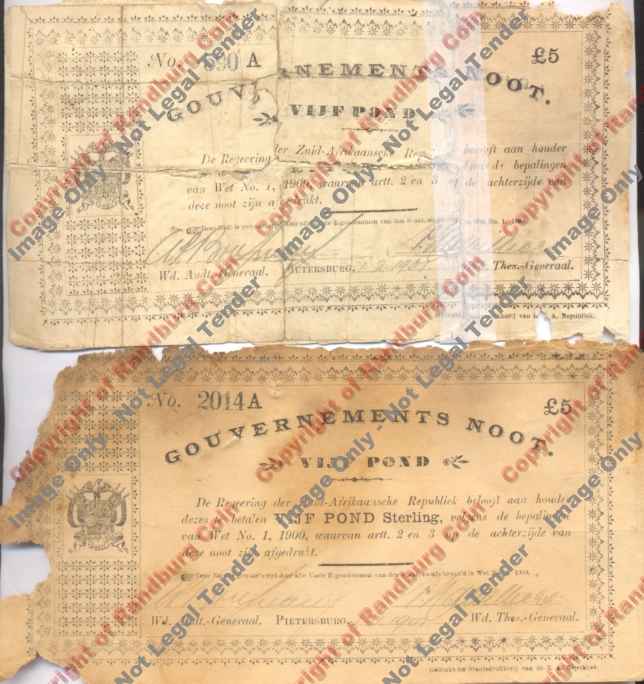 No. 90 A £5
GOUVERNEMENTS NOOT.
VIJF POND
De Regeering der Zuid-Afrikaansche belooft aan houder
bepalingen
van Wet No. 1, 1900, waarvan artt. 2 en 3 op de achterzijde van
deze noot zijn afgedrukt.
Wd. Audt.-Generaal. PIETERSBURG, Thes.-Generaal.
No. 2014 A £5
GOUVERNEMENTS NOOT.
VIJF POND
De Regeering der Zuid-Afrikaansche Republiek belooft aan houder
dezes te betalen VIJF POND Sterling, volgens de bepalingen
van Wet No. 1, 1900, waarvan artt. 2 en 3 op de achterzijde van
deze noot zijn afgedrukt.
Wd. Audt.-Generaal. PIETERSBURG, Wd. Thes.-Generaal.
Copyright of Randburg Coin
Image Only - Not Legal Tender